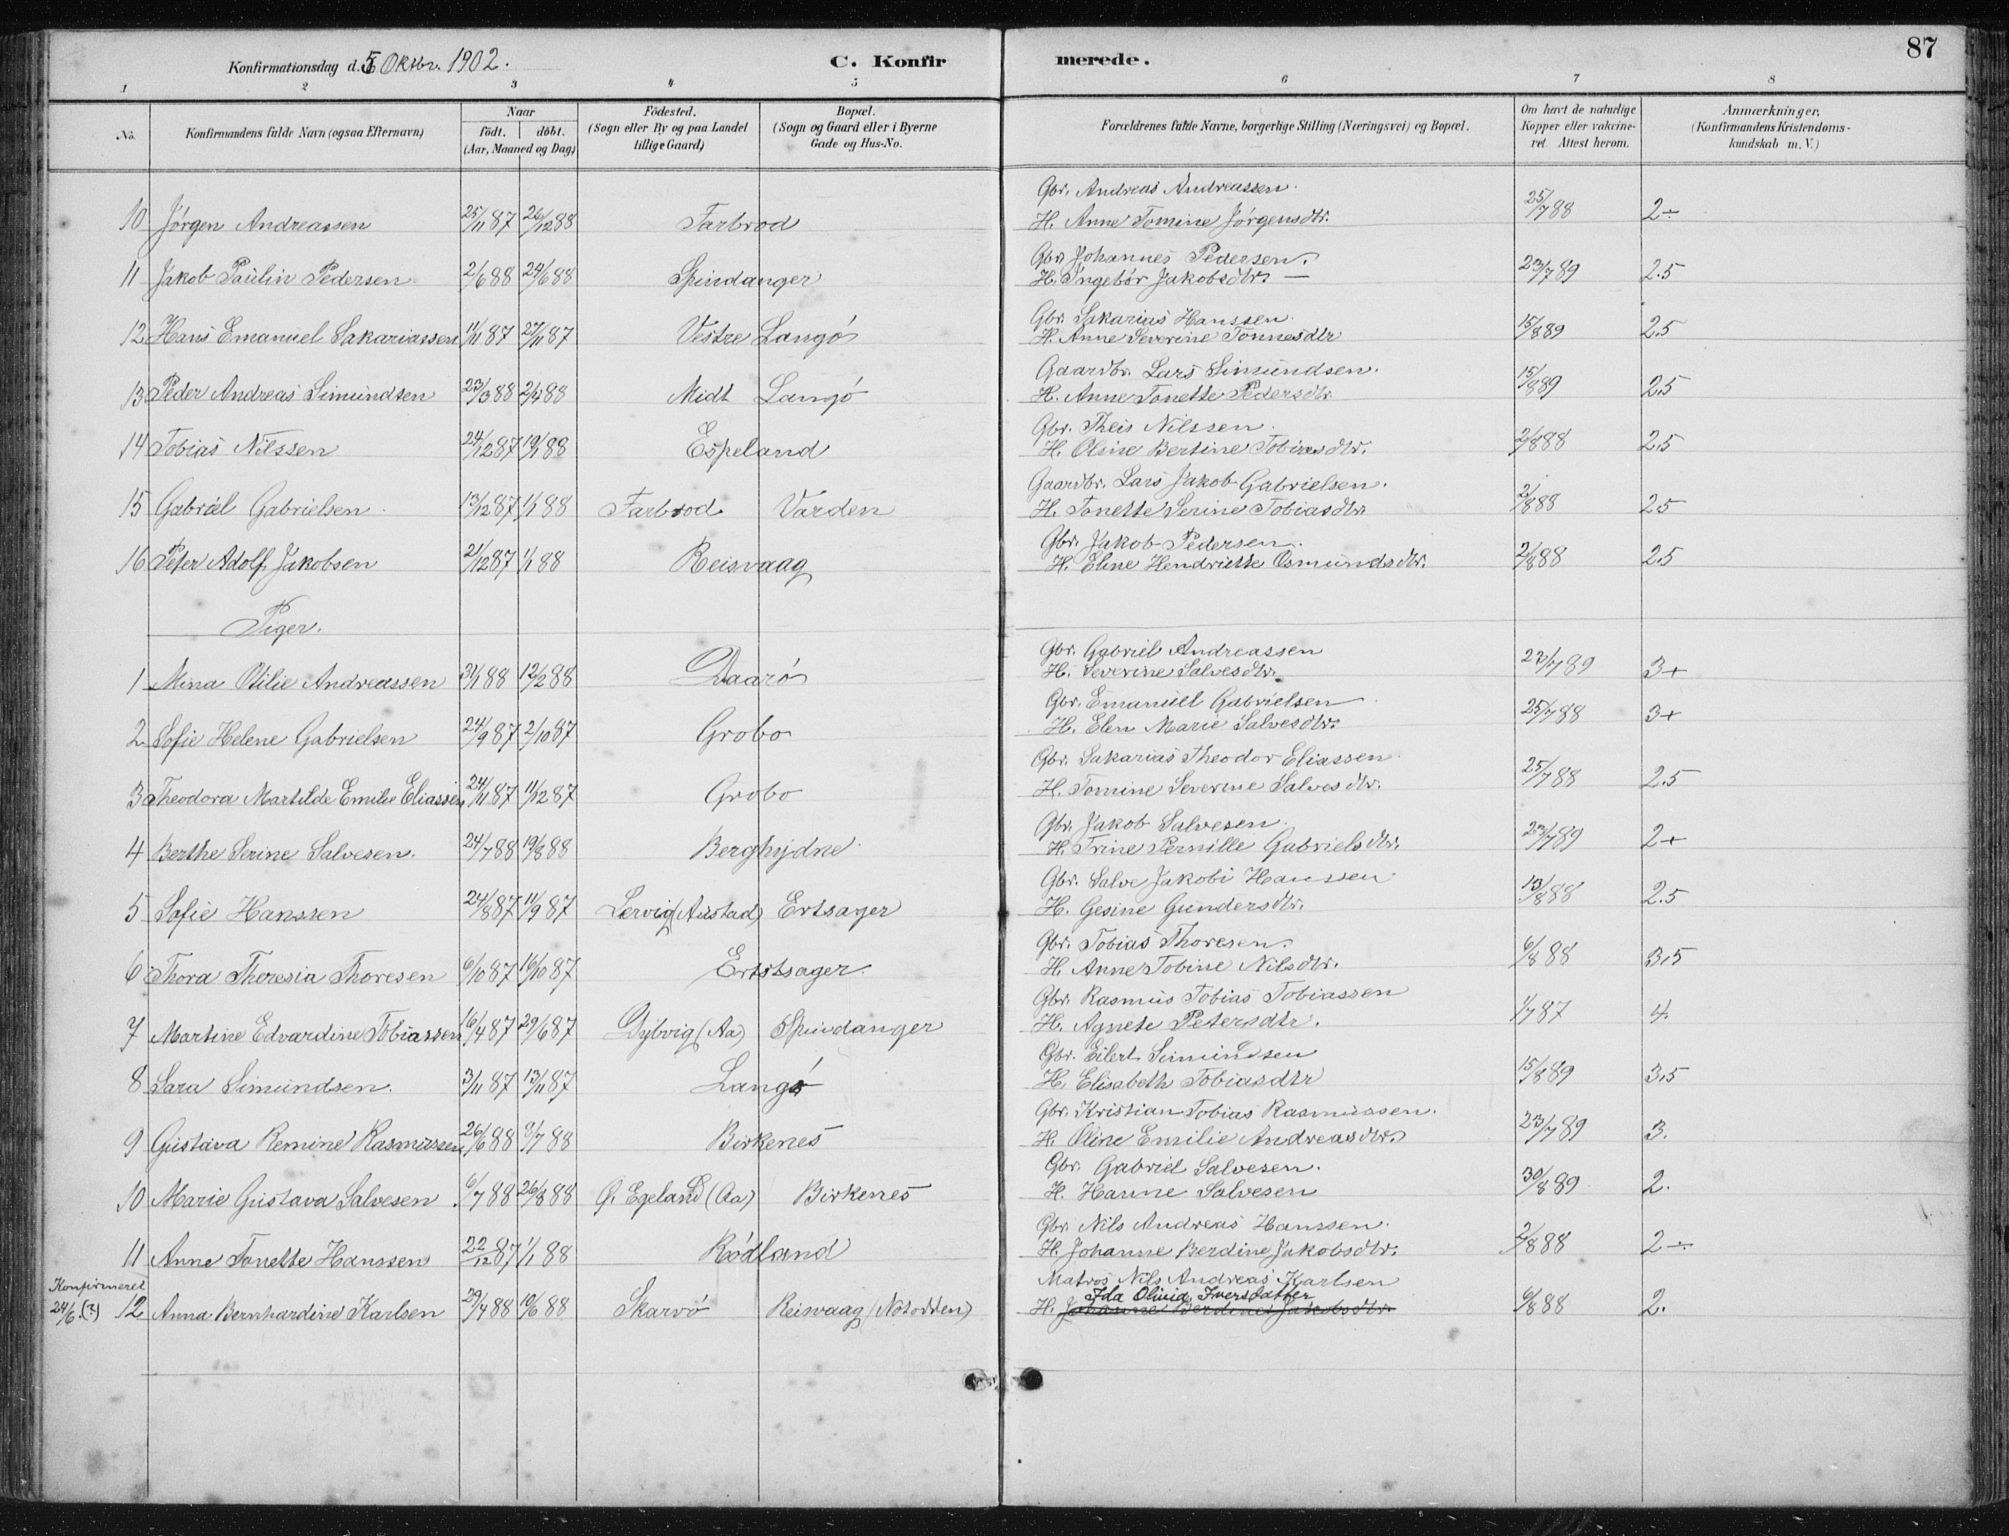 Konfirmationsdag d. 5 Oktbr. 1902.
C. Konfirmerede.
87
1 2 3 4 5 6 7 8
No.
Konfirmandens fulde Navn (ogsaa Efternavn)
Naar
födt. | döbt.
(Aar, Maaned og Dag)
Födested.
(Sogn eller By og paa Landet
tillige Gaard)
Bopæl.
(Sogn og Gaard eller i Byerne
Gade og Hus-No.
Forældrenes fulde Navne, borgerlige Stilling (Næringsvei) og Bopæl.
Om havt de naturlige
Kopper eller vakcine-
ret. Attest herom.
Anmærkninger.
(Konfirmandens Kristendoms-
kundskab m. V.)
Gbr. Andreas Andreassen.
10 Jörgen Andreassen 25/11 87 26/12 88 Farbrod H. Anne Tomine Jörgensdtr. 25/7 88 2÷
Gbr. Johannes Pedersen.
11 Jakob Paulin Pedersen 2/6 88 24/6 88 Spindanger H. Ingebór Jakobsdtr. — 23/7 89 2.5
Gbr. Sakarias Hanssen.
12 Hans Emanuel Sakariassen 11/11 87 27/11 87 Vestre Langö H. Anne Severine Tönnesdtr 15/8 89 2.5
Gaardbr. Lars Simundsen.
13 Peder Andreas Simundsen 23/3 88 2/4 88 Midt Langö H. Anne Tonette Pedersdtr. 15/8 89 2.5
Gbr. Theis Nilssen.
14 Tobias Nilssen 24/12 87 19/1 88 Espeland H. Olsine Bertine Tobiasdtr. 2/8 88 2.5
Gaardbr. Lars Jakob Gabrielsen.
15 Gabriel Gabrielsen 13/12 87 1/1 88 Farbrod Varden H. Tonette Serine Tobiasdtr. 2/8 88 2.5
Gbr. Jakob Pedersen.
16 Peter Adolf Jakobsen 21/12 87 1/1 88 Reisvaag H. Eline Hendriette Osmundsdtr. 2/8 88 2.5
Piger.
Gbr. Gabriel Andreassen
1 Mina Otilie Andreassen 31/1 88 12/2 88 Daarö H. Severine Salvesdtr. 27/7 89 3+
Gbr. Emanuel Gabrielsen
2 Sofie Helene Gabrielsen 24/9 87 2/10 87 Grobo H. Elen Marie Salvesdtr. 25/7 88 3+
Gbr. Sakarias Theodor Eliassen.
3 Theodora Martilde Emilie Eliassen 24/11 87 11/12 87 Grobo H. Tomine Severine Salvesdtr. 25/7 88 2.5
Gbr. Jakob Salvesen.
4 Berthe Serine Salvesen. 24/7 88 19/8 88 Berghydne H. Trine Pernille Gabrielsdtr. 23/7 89 2+
Gbr. Salve Jakobi Hanssen
5 Sofie Hanssen 24/8 87 11/9 87 Lervig (Austad) Ertsager H. Gesine Gundersdtr. 13/8 88 2.5
Gbr. Tobias Thoresen.
6 Thora Theresia Thoresen 6/10 87 16/10 87 Ertstsager H. Anne Tobine Nilsdtr. 6/8 88 3,5
Gbr. Rasmus Tobias Tobiassen
7 Martine Edvardine Tobiassen 16/4 87 29/6 87 Dybvig (Aa) Spindanger H. Agnete Petersdtr. 1/7 87 4
Gbr. Eilert Simundsen
8 Sara Simundsen. 3/11 87 13/11 87 Langö H. Elisabeth Tobiasdtr 15/8 89 3,5
Gbr. Kristian Tobias Rasmussen.
9 Gustava Remine Rasmussen 26/6 88 9/7 88 Birkenes H. Oline Emilie Andreasdtr. 23/7 89 3.
Gbr. Gabriel Salvesen.
10 Marie Gustava Salvesen. 6/7 88 26/8 88 Ö. Egeland (Aa) Birkenes H. Hanne Salvesen 30/8 89 2.
Gbr. Nils Andreas Hanssen.
11 Anne Tonette Hanssen 22/12 87 1/1 88 Rödland H. Johanne Berdine Jakobsdtr. 2/8 88 2÷
Konfirmeret
24/6. (3)
Matros Nils Andreas Karlsen
Ida Olivia Iversdatter
12 Anna Bernhardine Karlsen 29/4 88 10/6 88 Skarvö Reisvaag (Notodden) H. Johanne Berdine Jakobsdtr. 6/8 88 2.